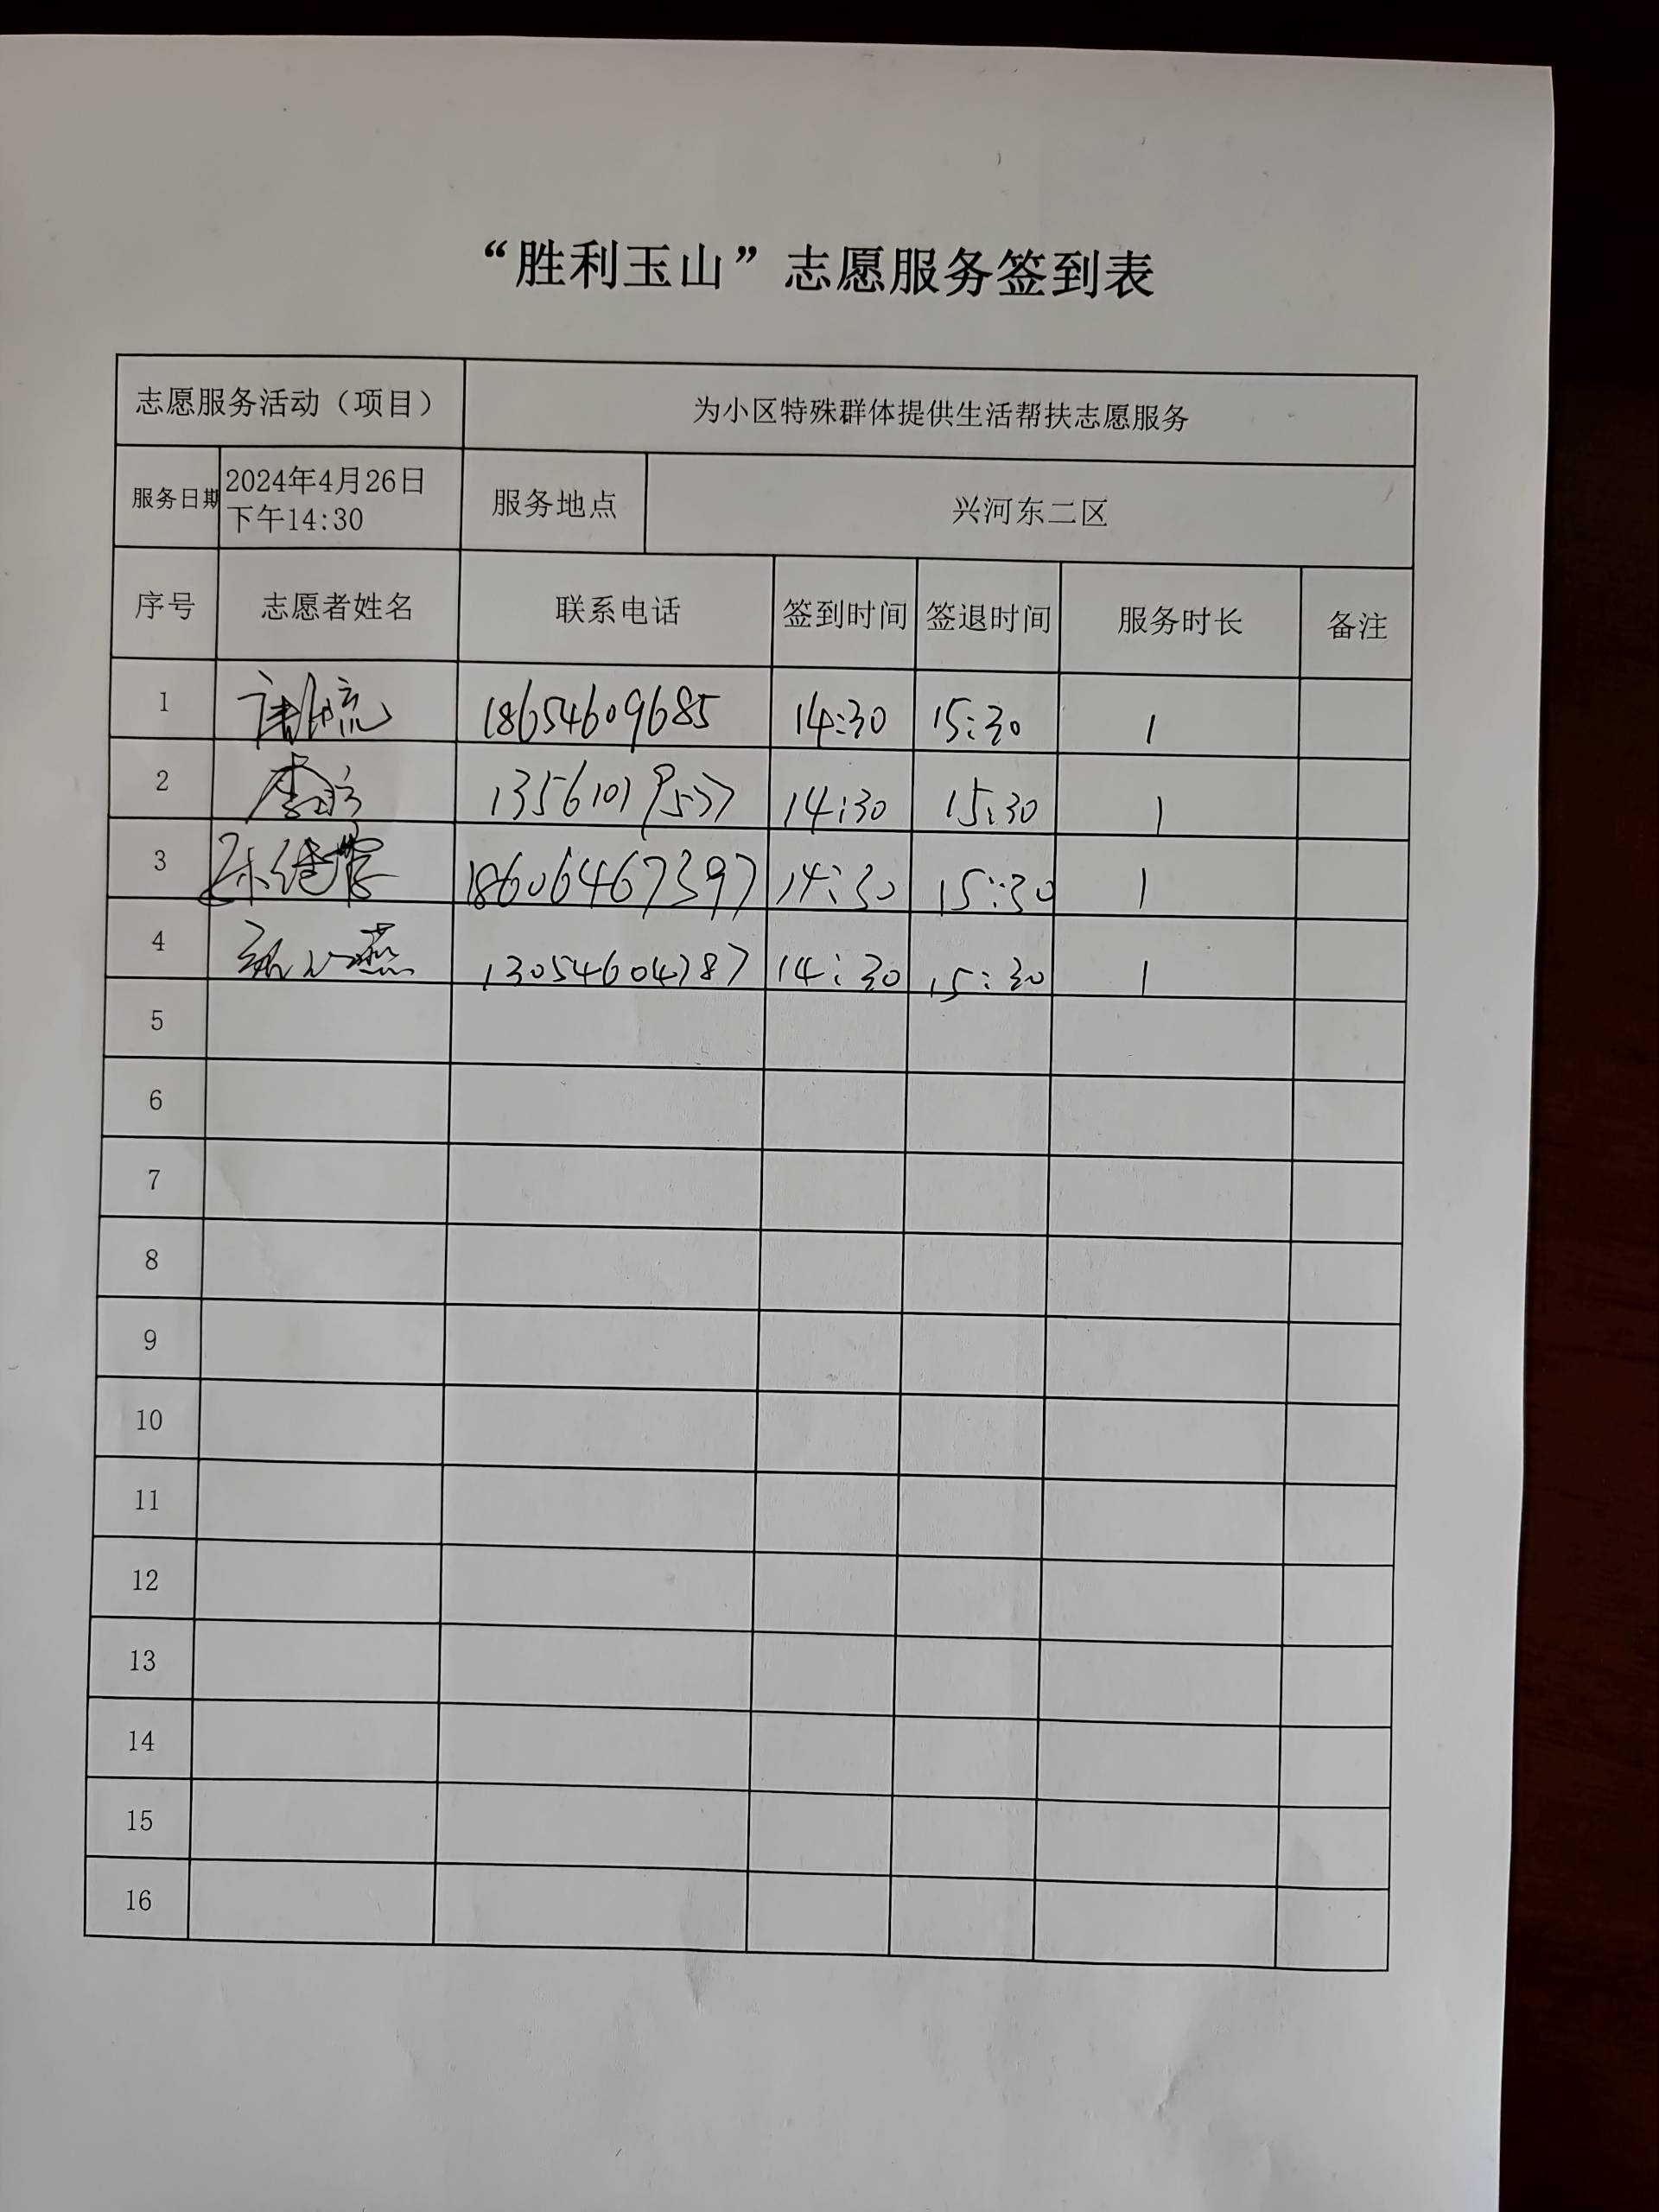 “胜利玉山”志愿服务签到表
志愿服务活动（项目） 为小区特殊群体提供生活帮扶志愿服务
服务日期 2024年4月26日 下午14:30 服务地点 兴河东二区
序号 志愿者姓名 联系电话 签到时间 签退时间 服务时长 备注
1 18654609685 14:30 15:30 1
2 14:30 15:30 1
3 18606467397 14:30 15:30 1
4 14:30 15:30 1
5
6
7
8
9
10
11
12
13
14
15
16